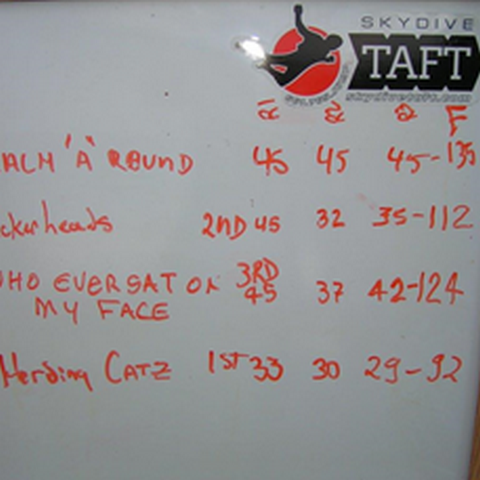 SKYDIVE
TAFT
skydivetaft.com
R1 R2 R3 F
ALM 'A' ROUND 45 45 45-135
ckerheads 2ND 45 32 35-112
HO EVER SAT ON 3RD 45 37 42-124
MY FACE
Herding CATZ 1ST 33 30 29-92